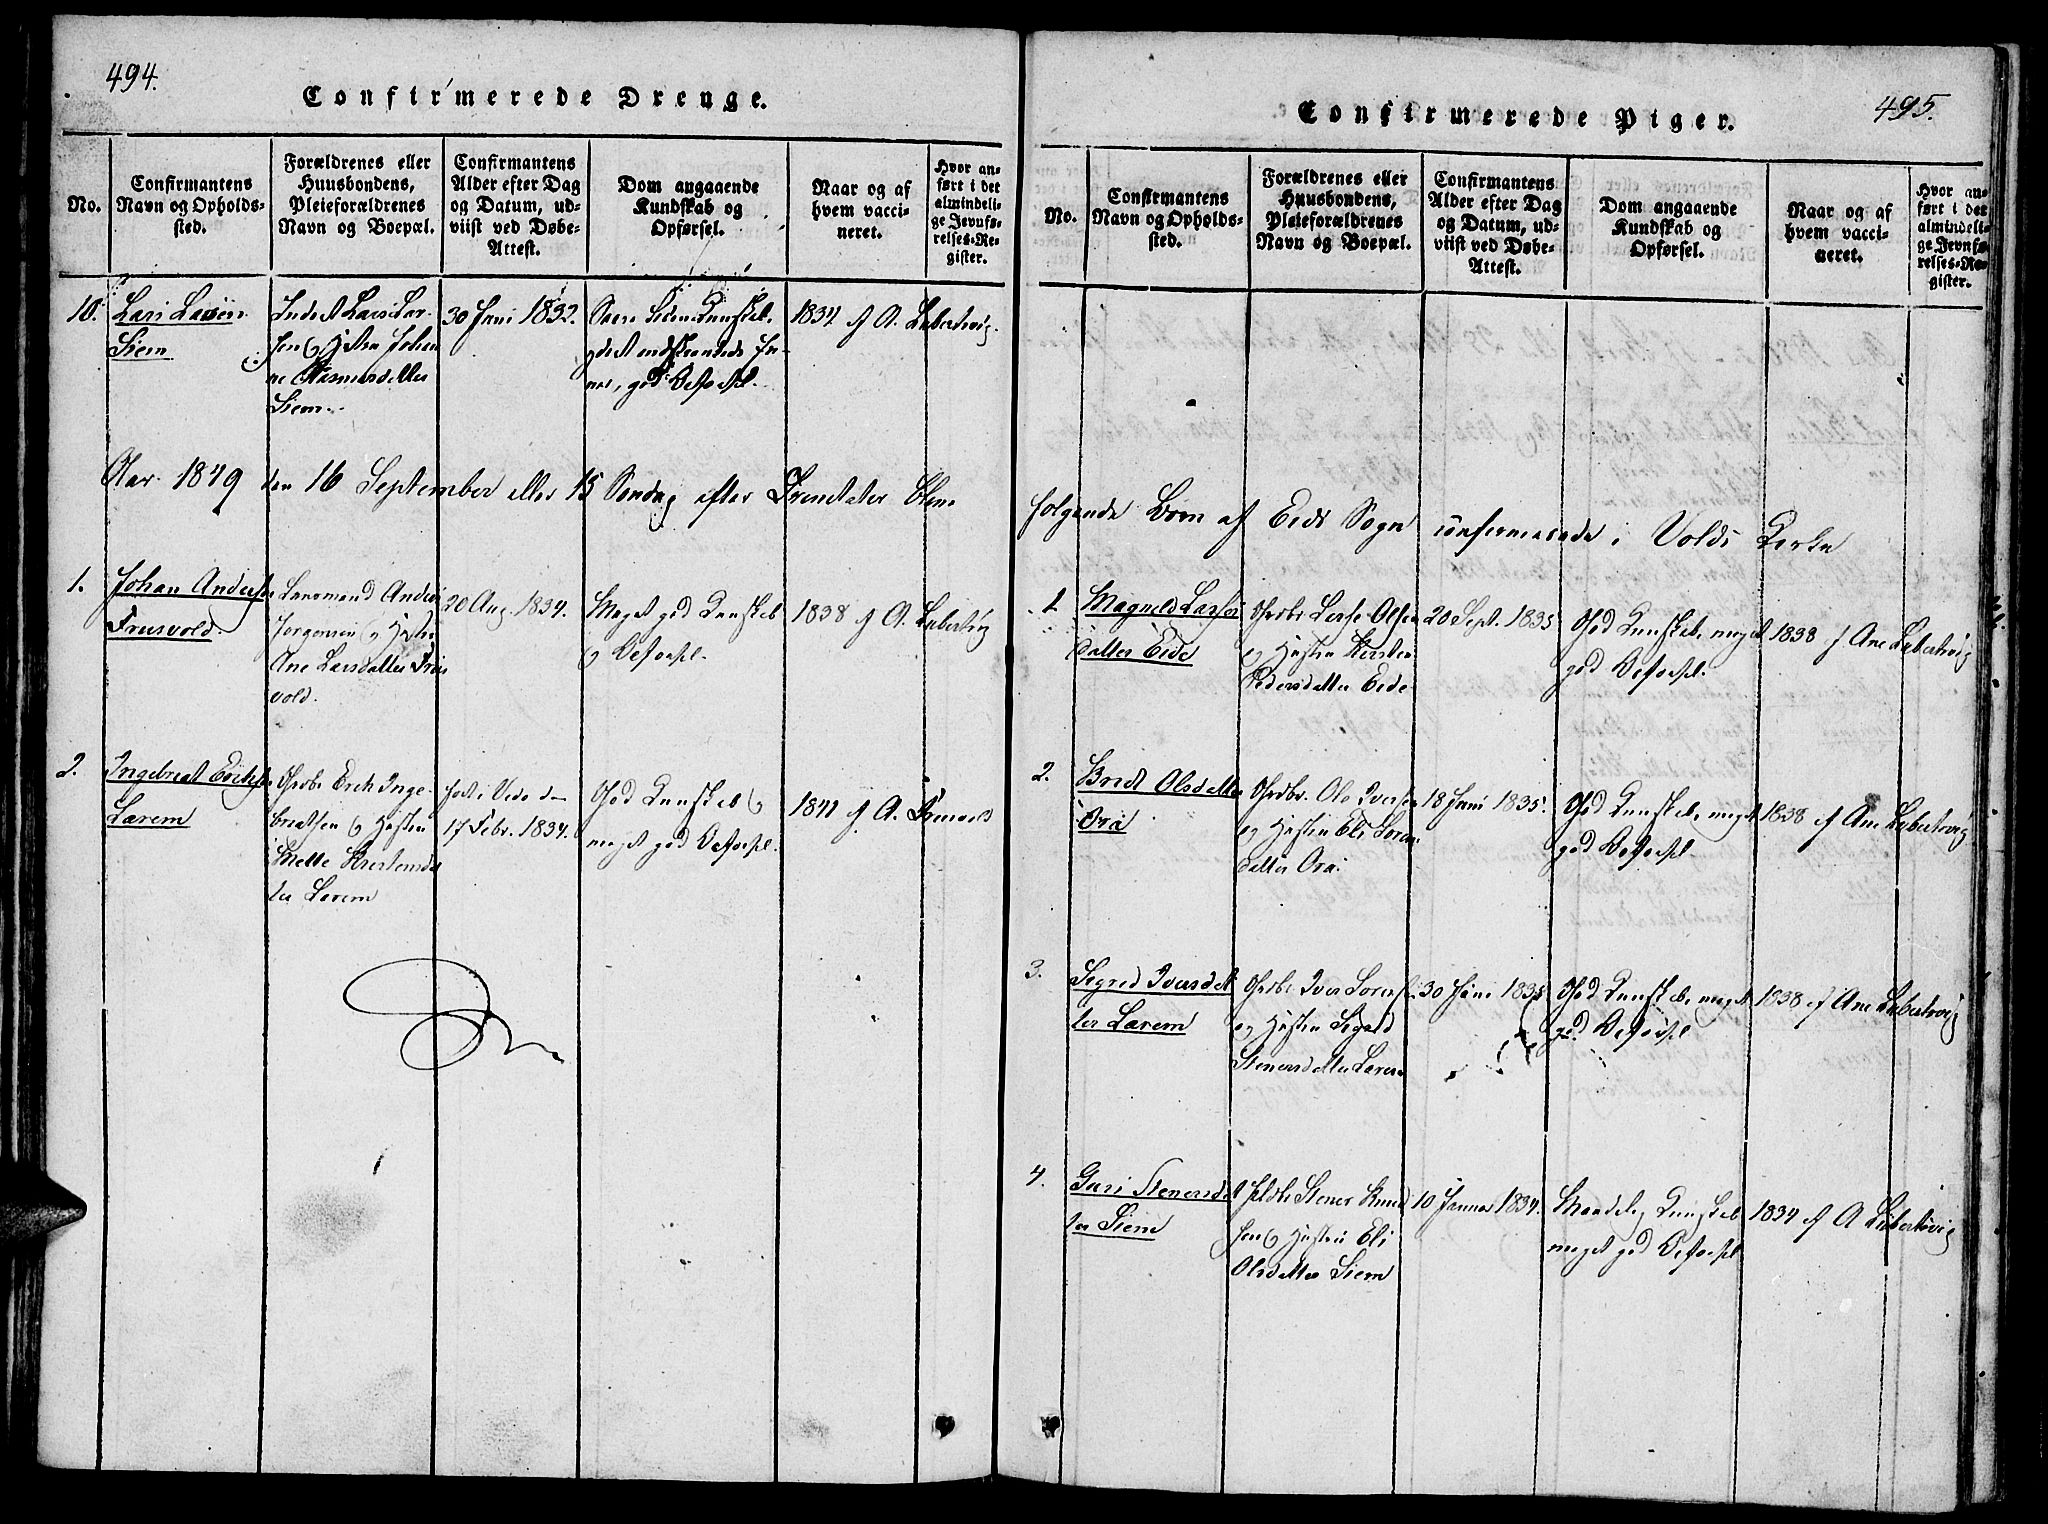 494.
Confirmerede Drenge.
No.
Confirmantens
Navn og Opholds-
sted.
Forældrenes eller
Huusbondens,
Pleieforældrenes
Navn og Boepæl.
Confirmantens
Alder efter Dag
og Datum, ud-
viist ved Døbe-
Attest.
Dom angaaende
Kundskab og
Opførsel.
Naar og af
hvem vacci-
neret.
Hvor an-
ført i det
almindeli-
ge Jevnfø-
relses-Re-
gister.
10.
Lars Larsen
Siem
Inds Lars Lar-
sen
Siem.
30 Juni 1832.
god Opførsel.
1834 af A. Løbertsvig.
Aar 1849 den 16 September eller 15 Søndag efter Trinitatis blev
1.
Johan Anders
Frusvold.
Lensmand Anders
Jørgensen og Hustru
Ane Larsdatter Frus
vold.
20 Aug. 1834.
Meget god Kundskab
og Opførsel.
1838 af A. Løbertsvig
2.
Ingebregt Erichs
Larem
Grdbr. Erich Inge-
bregtsen og Hustru
Mette
ter Larem
født i Vedø d
17 Febr. 1834.
God Kundskab og
meget god Opførsel.
1841 af A. Frusvold
495.
Confirmerede Piger.
No.
Confirmantens
Navn og Opholds-
sted.
Forældrenes eller
Huusbondens,
Pleieforældrenes
Navn og Boepæl.
Confirmantens
Alder efter Dag
og Datum, ud-
viist ved Døbe-
Attest.
Dom angaaende
Kundskab og
Opførsel.
Naar og af
hvem vacci-
neret.
Hvor an-
ført i det
almindeli-
ge Jevnfø-
relses-Re-
gister.
følgende Børn af Eids Sogn confirmerede i Volds Kirke
1
Magnild Lasse
datter Eide
Grdbr. Lasse Olsen
og Hustru Kirsten
Pedersdatter Eide
20 Sept. 1835
God Kundskab, meget
god Opførsel.
1838 af Ane Løbertsvig
2.
Brit Olsdatter
Ora
Grdbr. Ole Iversen
og Hustru Eli Soren
datter Ora.
18 Juni 1835.
God Kundskab, meget
god Opførsel
1838 af Ane Løbertsvig
3.
Segred Iversdat
ter Larem
Grdbr. Iver Soren
og Hustru Segred
Stenersdatter Larem
30 Juni 1835
God Kundskab, meget
god Opførsel
1838 af Ane Løbertsvig
4.
Guri Stenersdat
ter Siem
Stener Knud
sen og Hustru Eli
Olsdatter Siem
10 Januar 1834.
Maadelig Kundskab
meget god Opførsel
1834 af A Løbertsvig